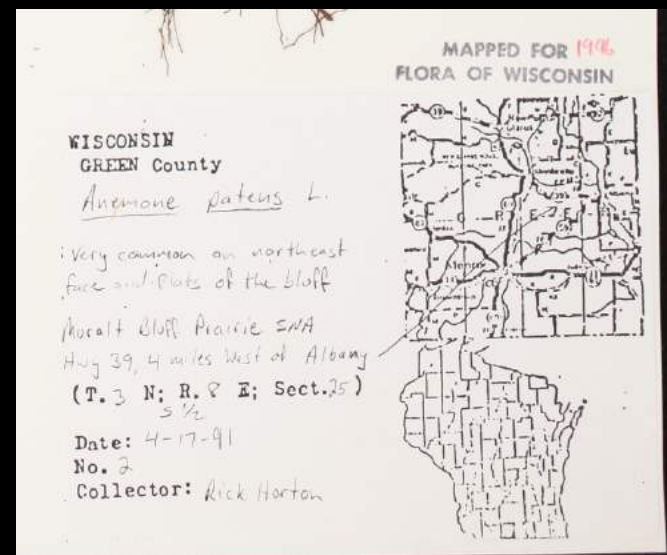 MAPPED FOR 1996
FLORA OF WISCONSIN
WISCONSIN
GREEN County
Anemone patens L.
: Very common on northeast
face and flats of the bluff
Muralt Bluff Prairie SNA
Hwy 39, 4 miles West of Albany
(T. 3 N; R. 8 E; Sect. 25)
S 1/2
Date: 4-17-91
No. 2
Collector: Rick Horton
39
59
Monroe